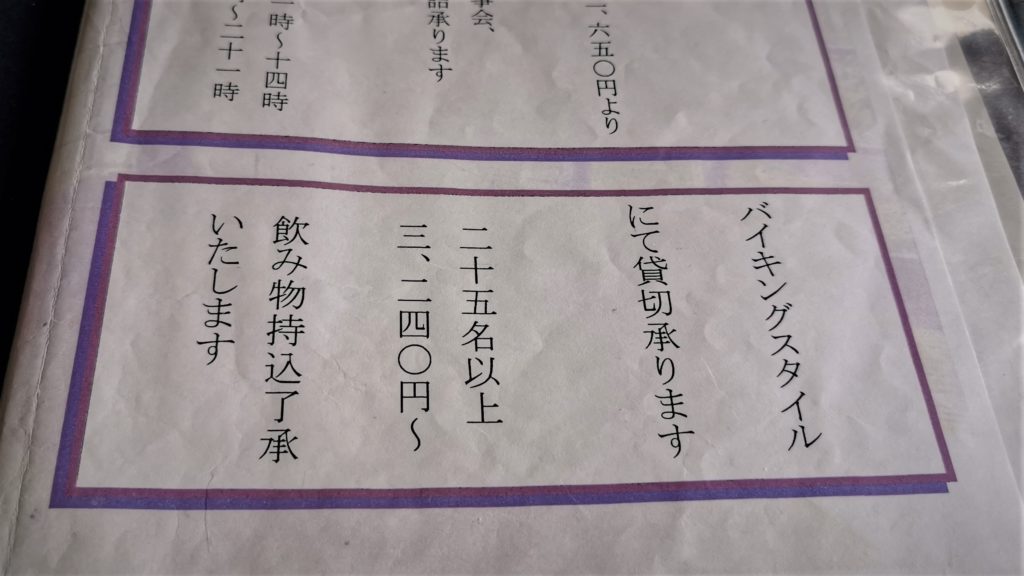 六五〇円より
事会、
承ります
一時～十四時
～二十一時
バイキングスタイル
にて貸切承ります
二十五名以上
三、二四〇円～
飲み物持込了承
いたします